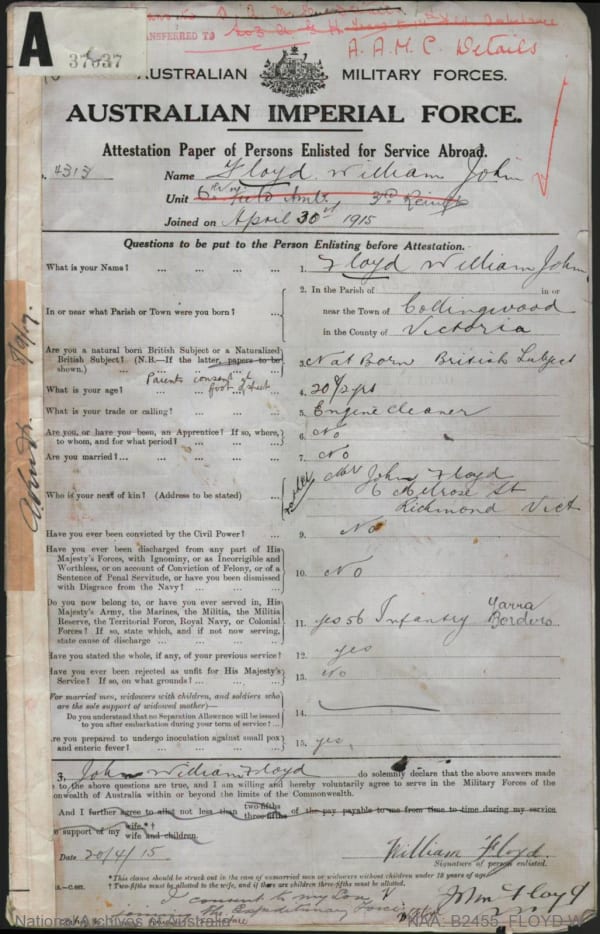 A
37637
TRANSFERRED TO
A.A.M.C. Details
AUSTRALIAN MILITARY FORCES.
AUSTRALIAN IMPERIAL FORCE.
Attestation Paper of Persons Enlisted for Service Abroad.
4313 Name Floyd William John
Unit 6th Field Ambl 3rd Reinfs
Joined on April 30th 1915
Questions to be put to the Person Enlisting before Attestation.
What is your Name? ... ... ... ... 1. Floyd William John
2. In the Parish of in or
In or near what Parish or Town were you born? ... near the Town of Collingwood
in the County of Victoria
Are you a natural born British Subject or a Naturalized
British Subject? (N.B.—If the latter, papers to be
shown.) ... 3. Nat Born British Subject
Parents consent at foot of sheet
What is your age? 4. 20 1/2 yrs
What is your trade or calling? ... ... ... 5. Engine cleaner
Are you, or have you been, an Apprentice? If so, where,
to whom, and for what period? ... ... ... 6. No
Are you married? ... ... ... ... 7. No
Who is your next of kin? (Address to be stated) ... father Mr John Floyd
6 Melrose St
Richmond Vict
Have you ever been convicted by the Civil Power? ... 9. No
Have you ever been discharged from any part of His
Majesty's Forces, with Ignominy, or as Incorrigible and
Worthless, or on account of Conviction of Felony, or of a
Sentence of Penal Servitude, or have you been dismissed
with Disgrace from the Navy? ... ... ... 10. No
Do you now belong to, or have you ever served in, His
Majesty's Army, the Marines, the Militia, the Militia
Reserve, the Territorial Force, Royal Navy, or Colonial
Forces? If so, state which, and if not now serving,
state cause of discharge ... ... ... 11. yes 56 Infantry Yarra Borders
Have you stated the whole, if any, of your previous service? 12. yes
Have you ever been rejected as unfit for His Majesty's
Service? If so, on what grounds? ... ... ... 13. No
(For married men, widowers with children, and soldiers who
are the sole support of widowed mother)—
Do you understand that no Separation Allowance will be issued
to you after embarkation during your term of service? ... 14.
Are you prepared to undergo inoculation against small pox
and enteric fever? ... ... ... ... 15. yes
3, John William Floyd do solemnly declare that the above answers made
to the above questions are true, and I am willing and hereby voluntarily agree to serve in the Military Forces of the
Commonwealth of Australia within or beyond the limits of the Commonwealth.
And I further agree to allot not less than two-fifths three-fifths of the pay payable to me from time to time during my service
support of my wife.*† wife and children.
Date 20/4/15 William Floyd.
Signature of person enlisted.
*This clause should be struck out in the case of unmarried men or widowers without children under 18 years of age.
†Two-fifths must be allotted to the wife, and if there are children three-fifths must be allotted.
I consent to my Son John Floyd
joining the Expeditionary Force
National Archives of Australia NAA: B2455, FLOYD W